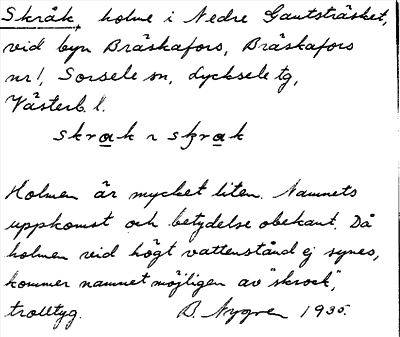 Skråk, holme i Nedre Gautsträsket,
vid byn Bräskafors, Bräskafors
nr 1, Sorsele sn, Lycksele tg,
Västerb. l.
skrak ~ skrak
Holmen är mycket liten. Namnets
uppkomst och betydelse obekant. Då
holmen vid högt vattenstånd ej synes,
kommer namnet möjligen av "skrock",
trolltyg. B. Nygren 1935.